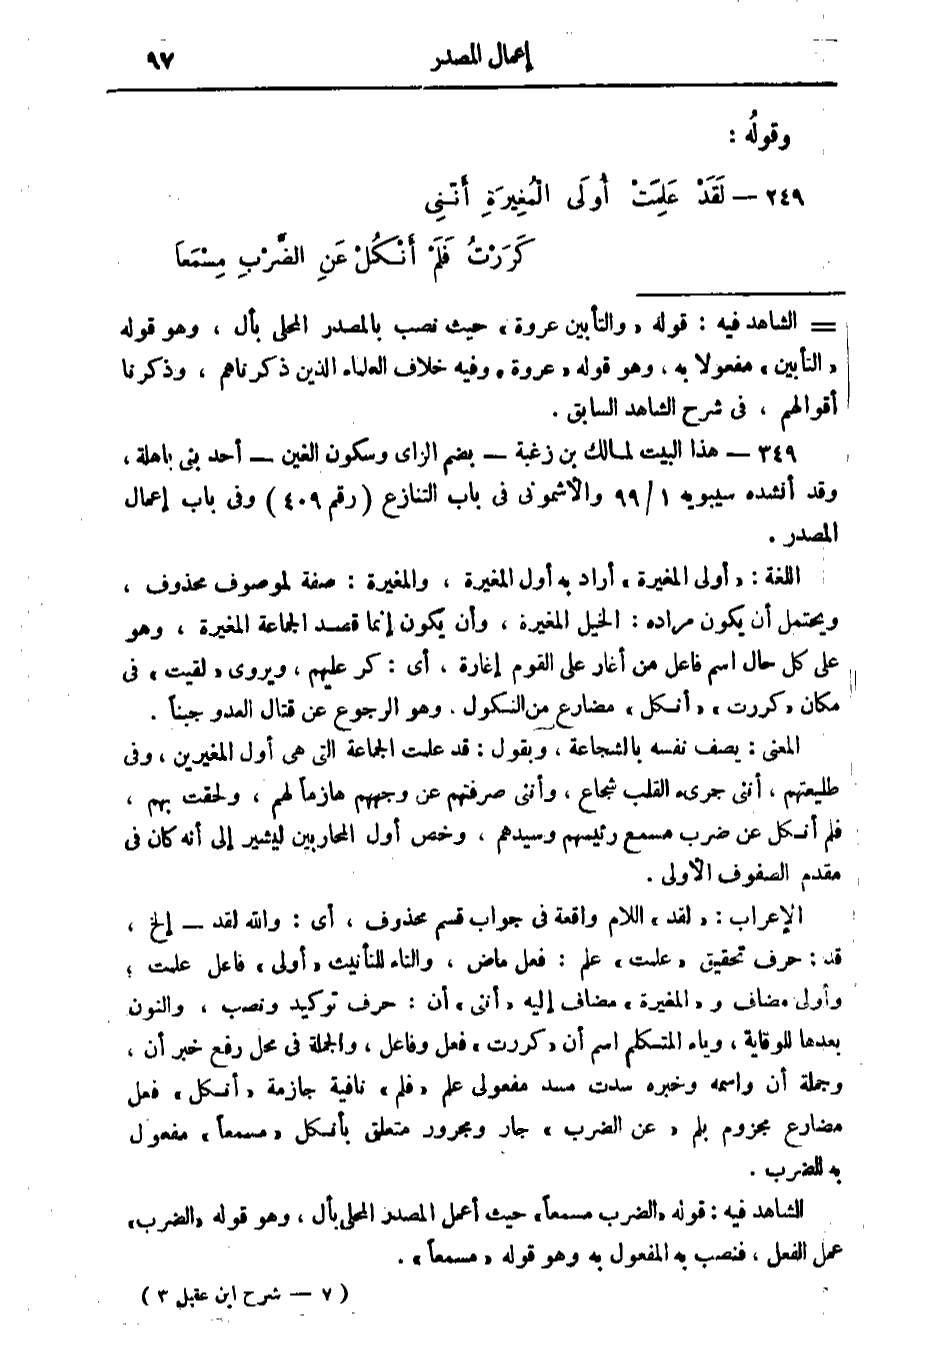 إعمال المصدر ٩٧
وقولُه :
٢٤٩ — لَقَدْ عَلِمَتْ أُولَى الْمُغِيرَةِ أَنَّنِي
كَرَرْتُ فَلَمْ أَنْكُلْ عَنِ الضَّرْبِ مِسْمَعَا
= الشاهد فيه : قوله « والتأبين عروة » حيث نصب بالمصدر المحلى بأل ، وهو قوله
« التأبين » مفعولا به ، وهو قوله « عروة » وفيه خلاف العلماء الذين ذكرناهم ، وذكرنا
أقوالهم ، فى شرح الشاهد السابق .
٣٤٩ — هذا البيت لمالك بن زغبة — بضم الزاى وسكون الغين — أحد بنى باهلة ،
وقد أنشده سيبويه ١ / ٩٩ والأشمونى فى باب التنازع ( رقم ٤٠٩ ) وفى باب إعمال
المصدر .
اللغة : « أولى المغيرة » أراد به أول المغيرة ، والمغيرة : صفة لموصوف محذوف ،
ويحتمل أن يكون مراده : الخيل المغيرة ، وأن يكون إنما قصد الجماعة المغيرة ، وهو
على كل حال اسم فاعل من أغار على القوم إغارة ، أى : كر عليهم ، ويروى « لقيت » فى
مكان « كررت » « أنكل » مضارع من النكول . وهو الرجوع عن قتال العدو جبناً .
المعنى : يصف نفسه بالشجاعة ، ويقول : قد علمت الجماعة التى هى أول المغيرين ، وفى
طليعتهم ، أننى جرىء القلب شجاع ، وأننى صرفتهم عن وجههم هازماً لهم ، ولحقت بهم ،
فلم أنكل عن ضرب مسمع رئيسهم وسيدهم ، وخص أول المحاربين ليشير إلى أنه كان فى
مقدم الصفوف الأولى .
الإعراب : « لقد » اللام واقعة فى جواب قسم محذوف ، أى : والله لقد — إلخ ،
قد : حرف تحقيق « علمت » علم : فعل ماض ، والتاء للتأنيث « أولى » فاعل علمت ؛
وأولى مضاف و « المغيرة » مضاف إليه « أننى » أن : حرف توكيد ونصب ، والنون
بعدها للوقاية ، وياء المتكلم اسم أن « كررت » فعل وفاعل ، والجملة فى محل رفع خبر أن ،
وجملة أن واسمه وخبره سدت مسد مفعولى علم « فلم » نافية جازمة « أنكل » فعل
مضارع مجزوم بلم « عن الضرب » جار ومجرور متعلق بأنكل « مسمعاً » مفعول
به للضرب .
الشاهد فيه : قوله « الضرب مسمعاً » حيث أعمل المصدر المحلى بأل ، وهو قوله « الضرب »
عمل الفعل ، فنصب به المفعول به وهو قوله « مسمعاً » .
( ٧ — شرح ابن عقيل ٣ )